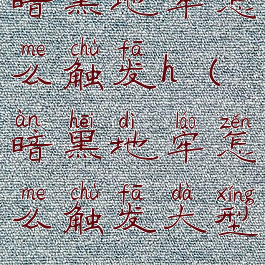 暗黑地牢怎
me chù fā
么触发h（
àn hēi dì láo zěn
暗黑地牢怎
me chù fā dà xíng
么触发大型